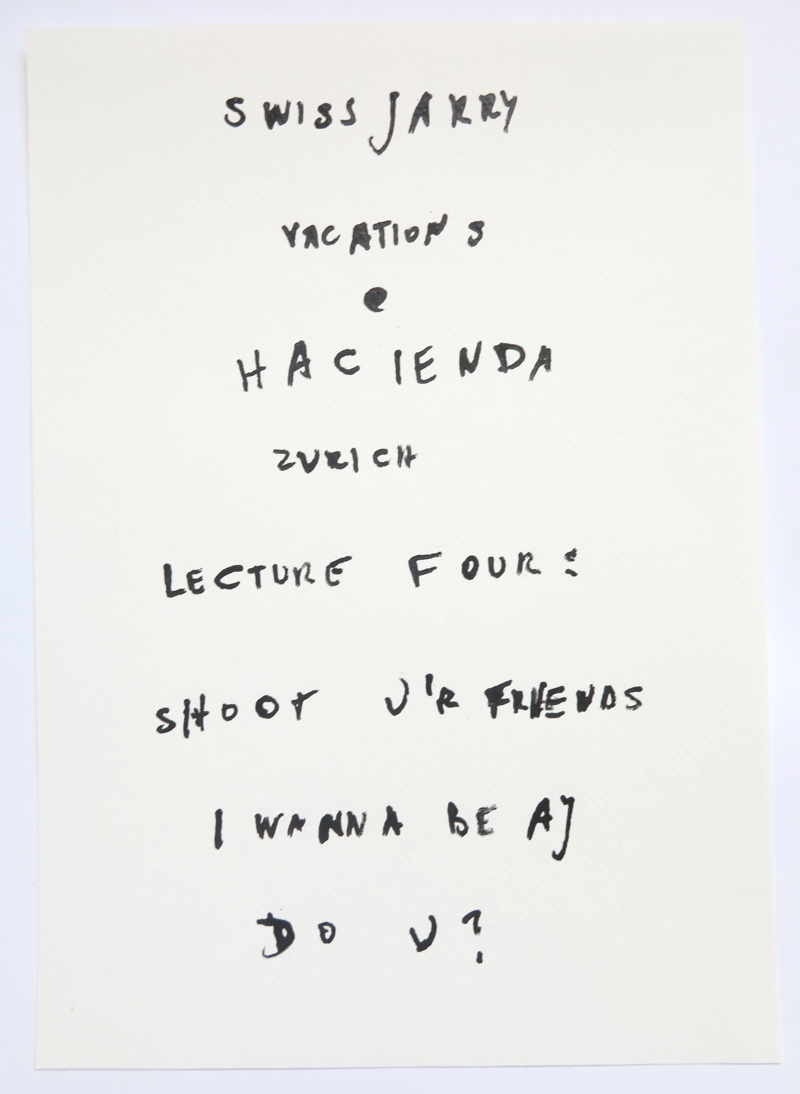 SWISS JARRY
VACATIONS
@
HACIENDA
ZURICH
LECTURE FOUR:
SHOOT U'R FRIENDS
I WANNA BE AJ
DO U?